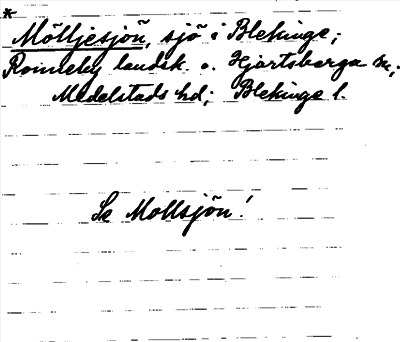 *
Mölljesjön, sjö i Blekinge;
Ronneby landsk. o. Hjortsberga sn,
Medelstads hd; Blekinge l.
Se Mollsjön!